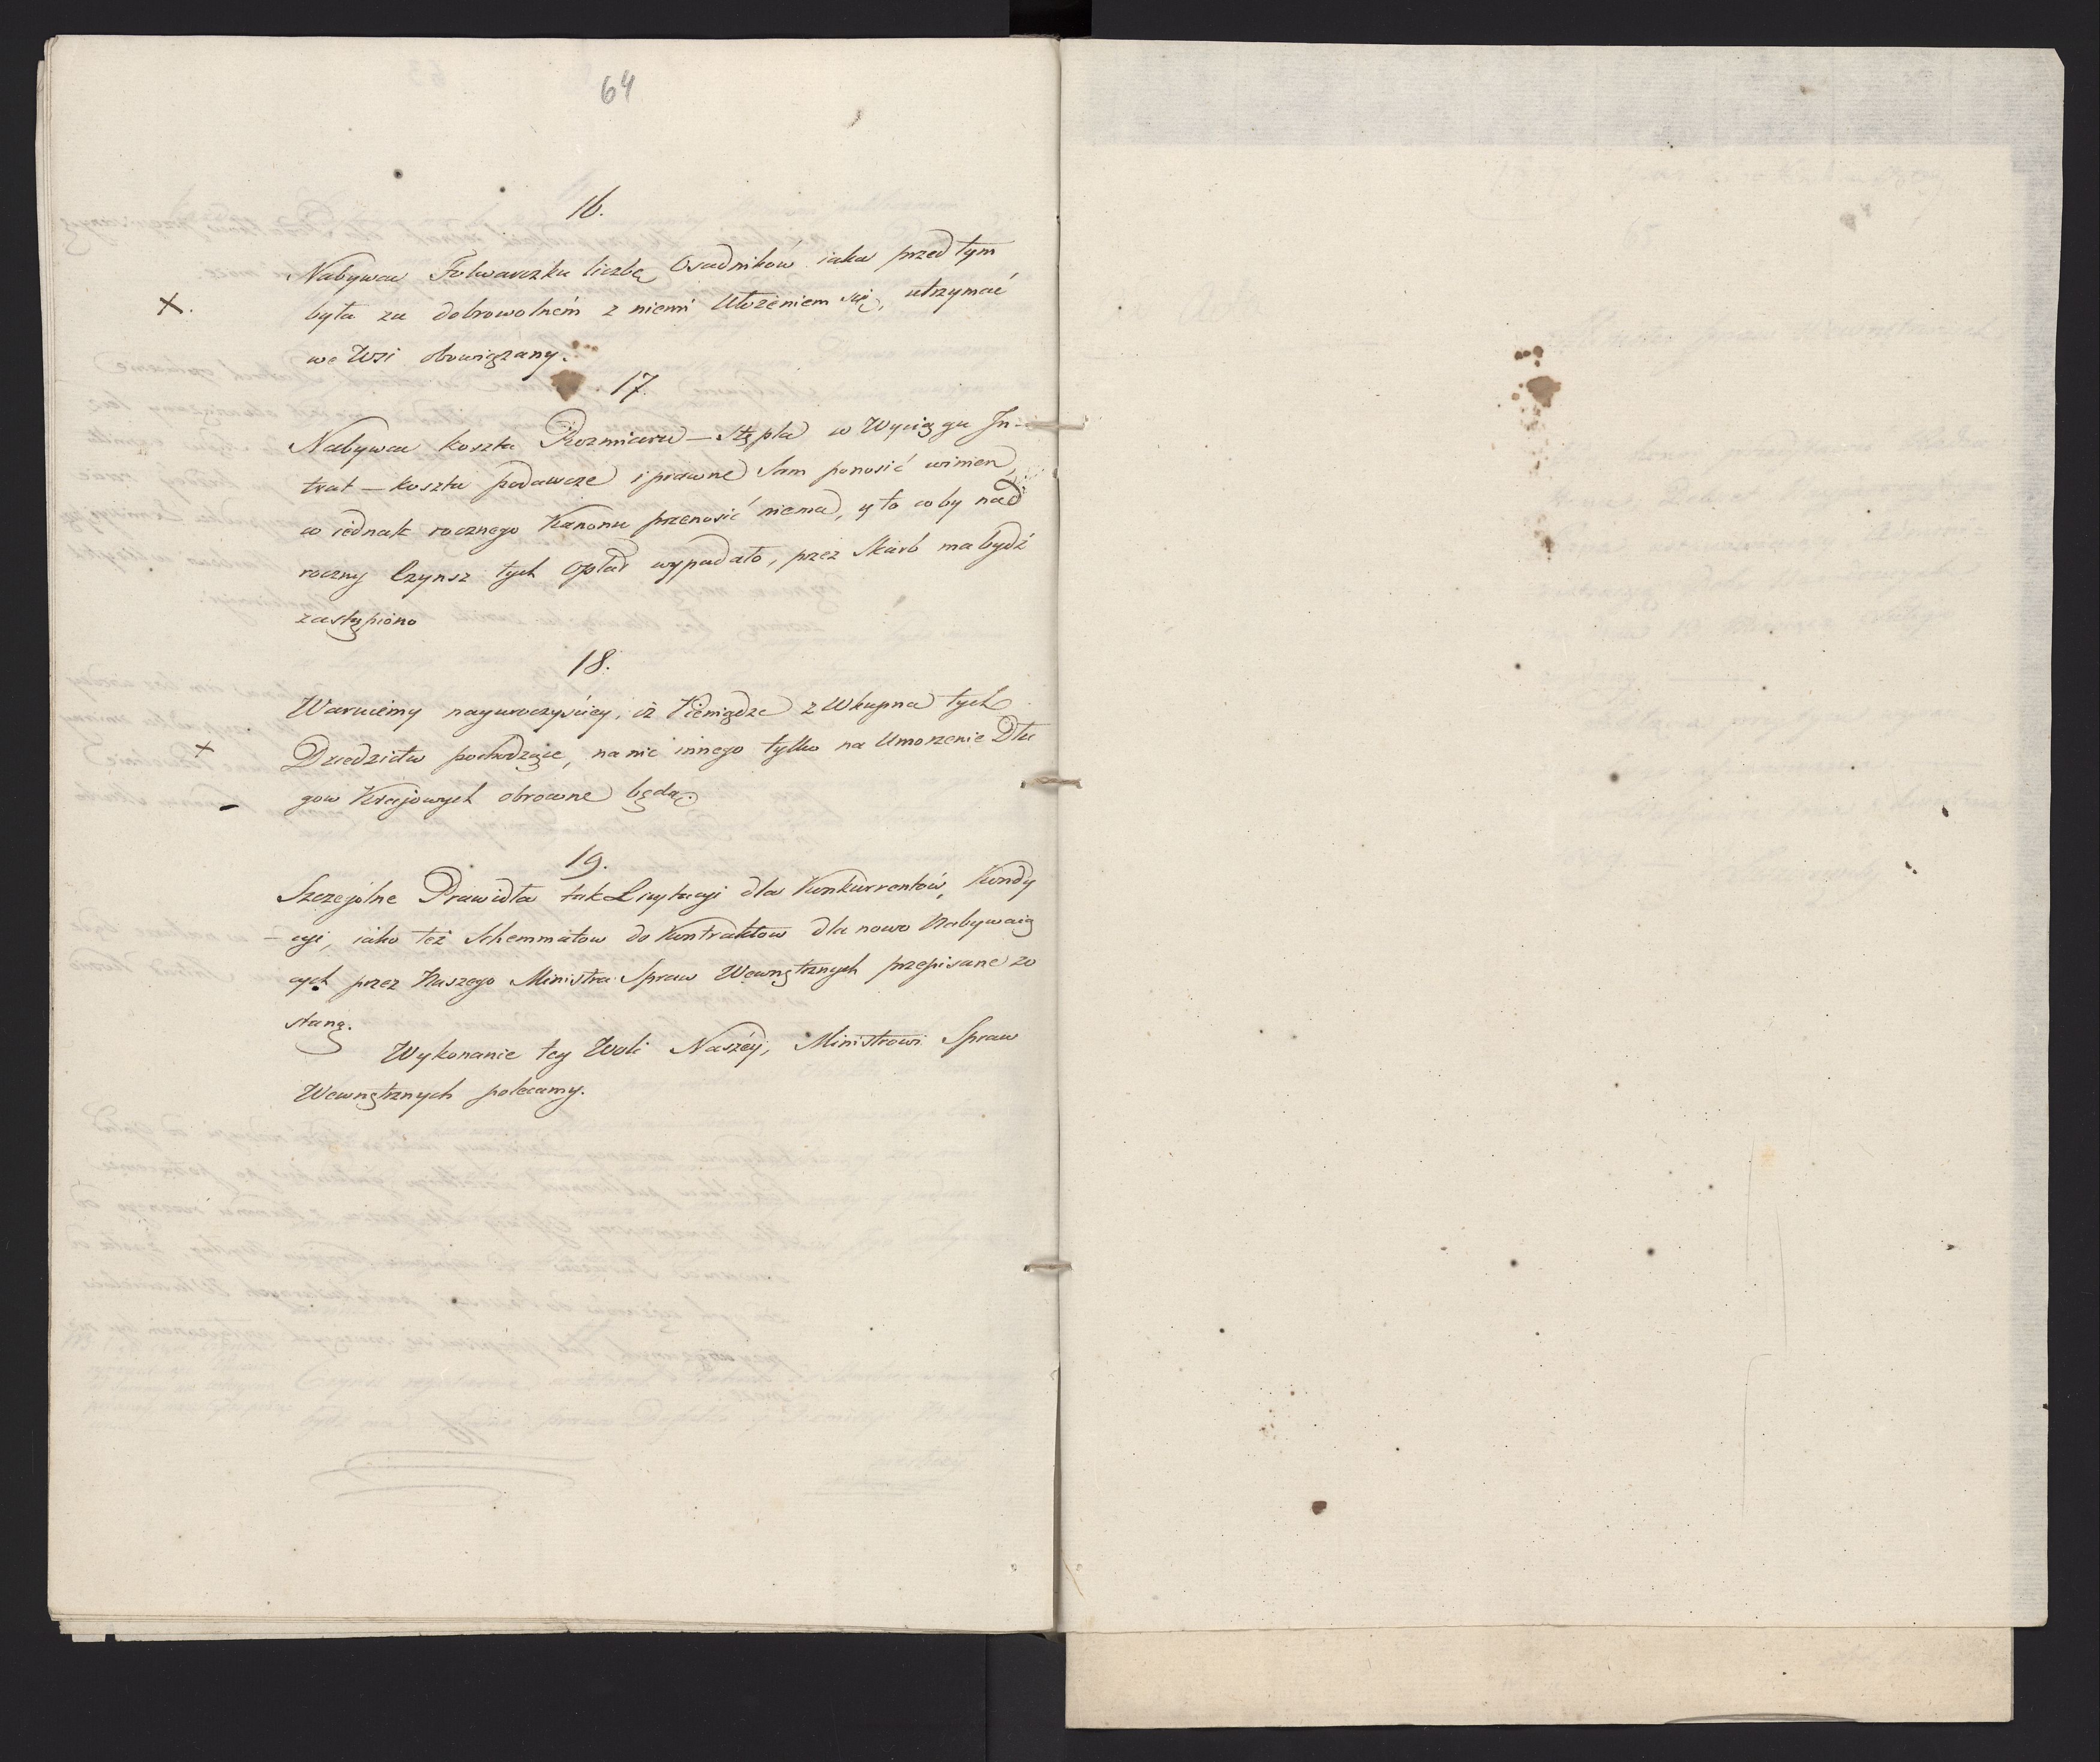 64
16.
Nabywca Folwarczku liczbę Osadników iaka przed tym
X.
była za dobrowolném z niemi Ułożeniem się, utrzymać
we Wsi obowiązany.
17.
Nabywca koszta Rozmiaru – Stępla w Wyciągu In-
trat – koszta podawcze i prawne Sam ponosić winien,
co iednak rocznego Kanonu przenosić niema, y to coby nad
roczny Czynsz tych Opłat wypadało, przez Skarb ma bydź
zastąpiono
18.
Waruiemy nayuroczyściey, iż Pieniądze z Wkupna tych
+
Dziedzictw pochodzące, na nic innego tylko na Umorzenie Dłu
gow Kraijowych obrocone będą.
19.
Szczególne Prawidła tak Licytacyi dla Konkurrentów, Kondy
- cyi, iako też Schemmatow do Kontraktow dla nowo Nabywaią
cych przez Naszego Ministra Spraw Wewnętrznych przepisane zo
staną.
Wykonanie tey Woli Naszéy, Ministrowi Spraw
Wewnętrznych polecamy.